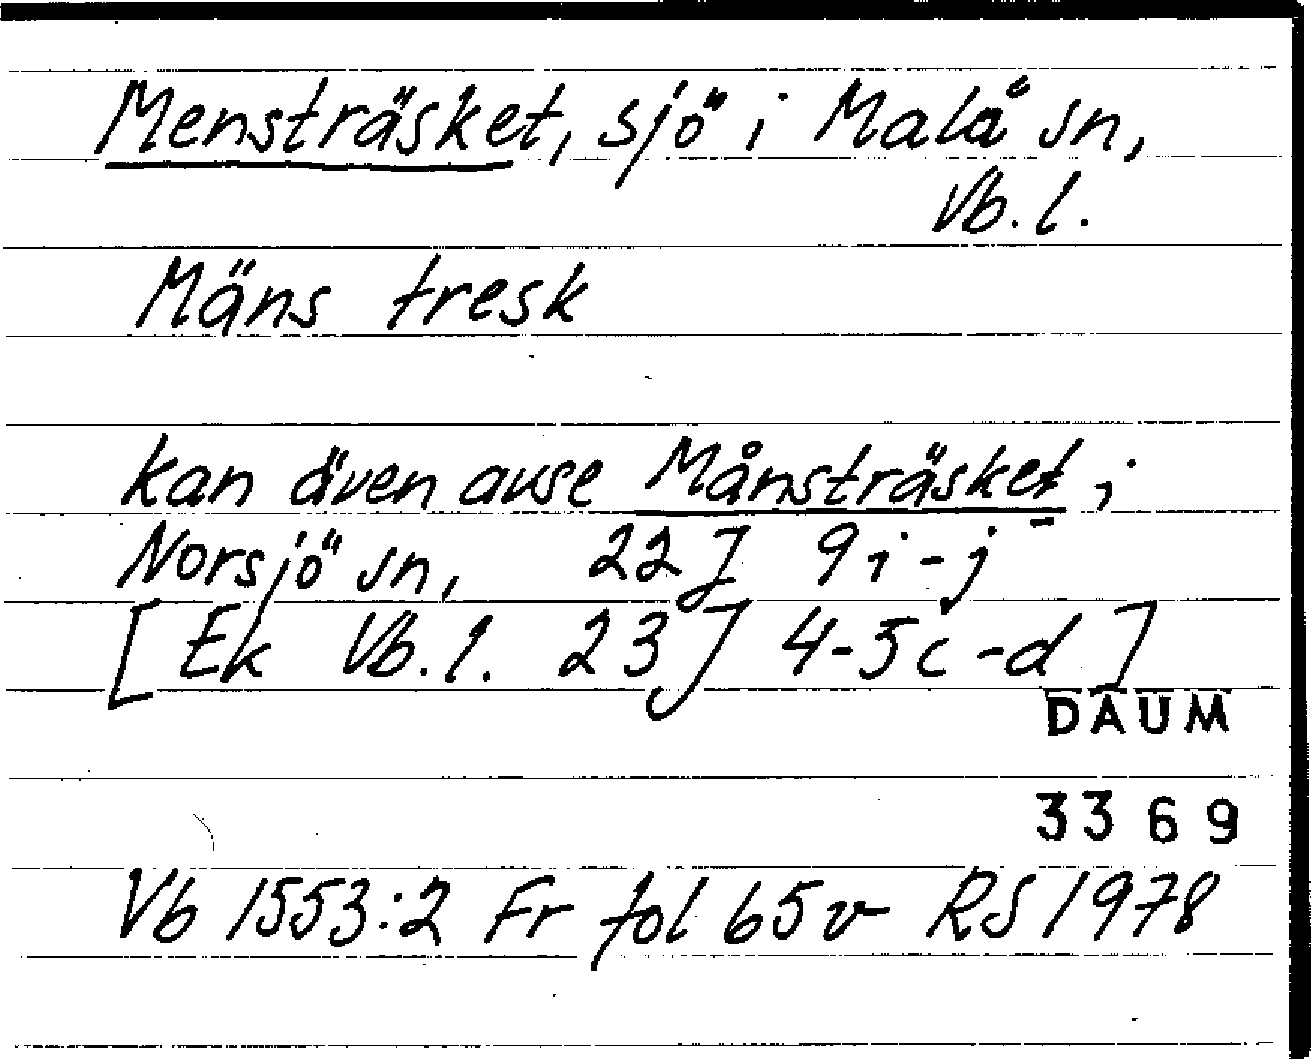 Mensträsket, sjö i Malå sn,
Vb. l.
Mäns tresk
kan även avse Månsträsket i
Norsjö sn, 22J 9i-j
[Ek Vb. l. 23J 4-5c-d]
DAUM
3369
Vb 1553:2 Fr fol 65v RS 1978